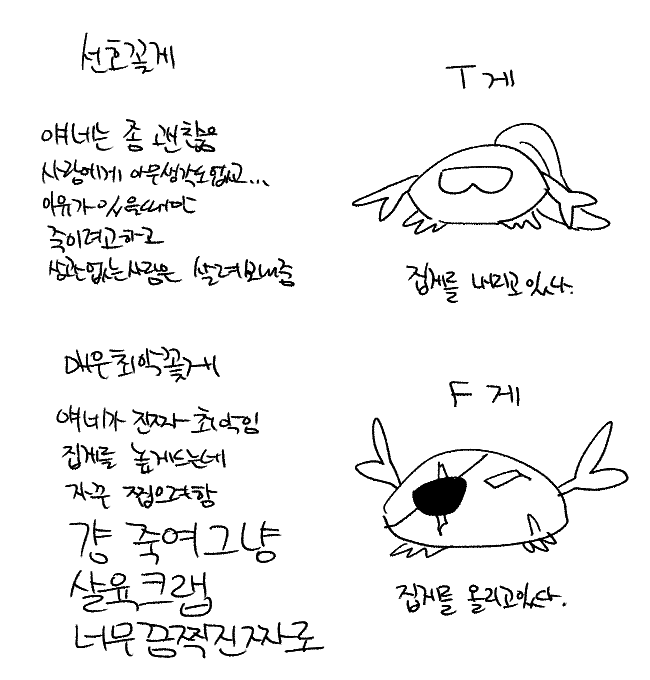 선호꽃게
얘네는 좀 괜찮음
사람에게 아무생각도없고...
이유가 있을때만
죽이려고하고
상관없는사람은 살려보내줌
T 게
집게를 내리고있다.
매운최악꽃게
얘네가 진짜 최악임
집게를 높게드는데
자꾸 찝으려함
걍 죽여 그냥
살육크랩
너무끔찍진짜로
F 게
집게를 올리고있다.